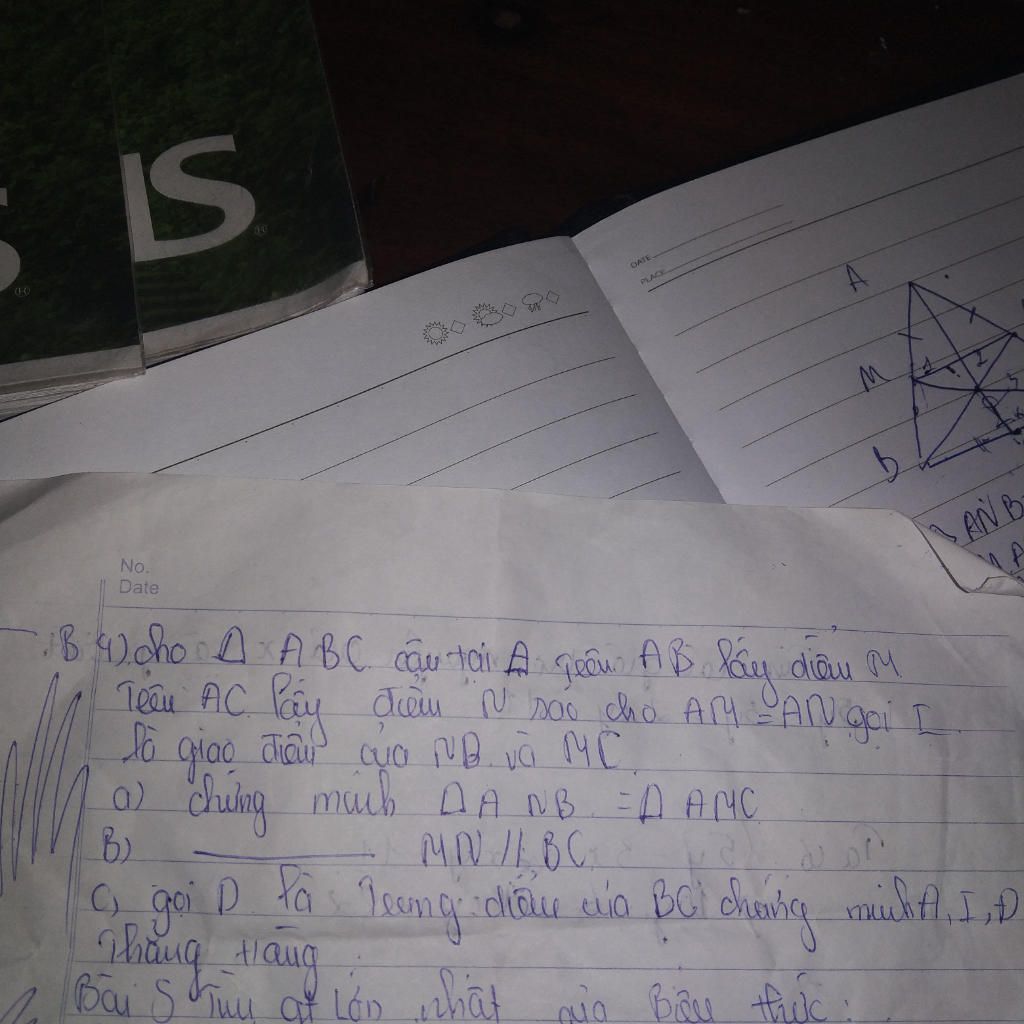 LS
S
DATE
PLACE
A
M
I
B
ANB
No.
Date
B 4). cho Δ ABC cân tại A trên AB lấy điểm M
Trên AC lấy điểm N sao cho AM = AN gọi I
là giao điểm của NB và MC
a) chứng minh Δ ANB = Δ AMC
B) ——— MN // BC
C, gọi D là Trung điểm của BC chứng minh A, I, D
Thẳng Hàng
Bài 5 Tìm gt Lớn nhất của Biểu thức: